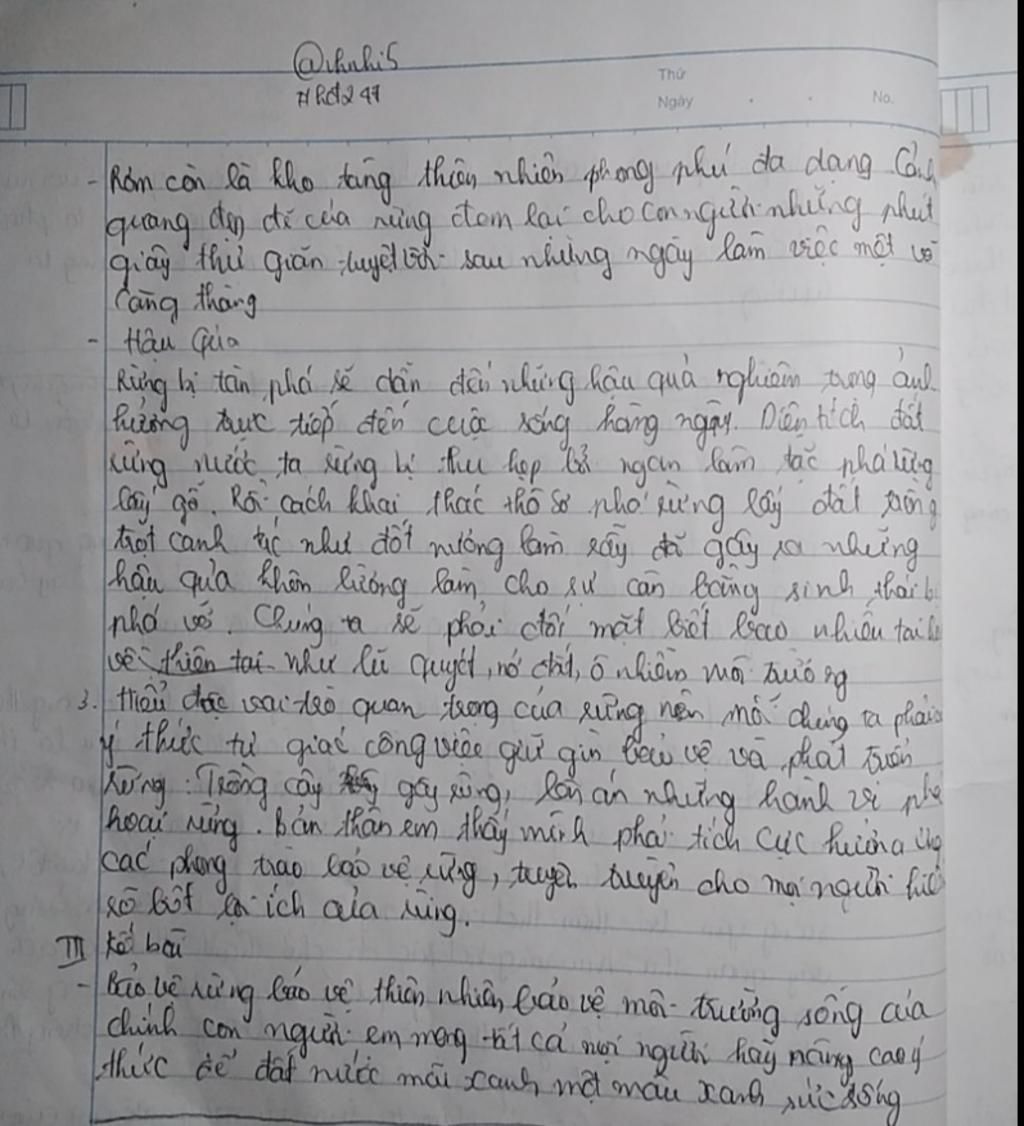 @ihnhi5
#Pd247
Thứ
Ngày
No.
- Rừm còn là kho tàng thiên nhiên phong phú đa dạng Cảnh
quang đẹp đẽ của rừng đem lại cho con người những phút
giây thư giãn tuyệt vời sau những ngày làm việc mệt và
Căng thẳng
- Hậu Qủa
Rừng bị tàn phá sẽ dẫn đến những hậu quả nghiêm trọng ảnh
hưởng trực tiếp đến cuộc sống hằng ngày. Diện tích đất
rừng nước ta rừng bị thu hẹp bởi ngạn lâm tặc phá rừng
lấy gỗ. Rồi cách khai thác thô sơ phá rừng lấy đất trồng
trọt canh tác như đốt nướng làm rẫy đã gây ra những
hậu qủa khôn lường làm cho sự cân bằng sinh thái bị
phá vỡ. Chúng ta sẽ phải đối mặt biết bao nhiêu tai
về thiên tai như lũ quyét, nở đất, ô nhiễm môi trường
3. Hiểu đặc vai trò quan trọng của rừng nên mỗi chúng ta phải
ý thức tự giác công việc giữ gìn bảo vệ và phát triển
Rừng: Trồng cây gây rừng, lên án những hành vi phá
hoại rừng. Bản thân em thấy mình phải tích cực hưởng ứng
các phong trào bảo vệ rừng, tuyên truyền cho mọi người hiểu
rõ bốt lợi ích của rừng.
III Kết bài
- Bảo vệ rừng bảo vệ thiên nhiên, bảo vệ môi trường sống của
chính con người em mong tất cả mọi người hãy nâng cao ý
thức để đất nước mãi xanh một màu xanh sức sống